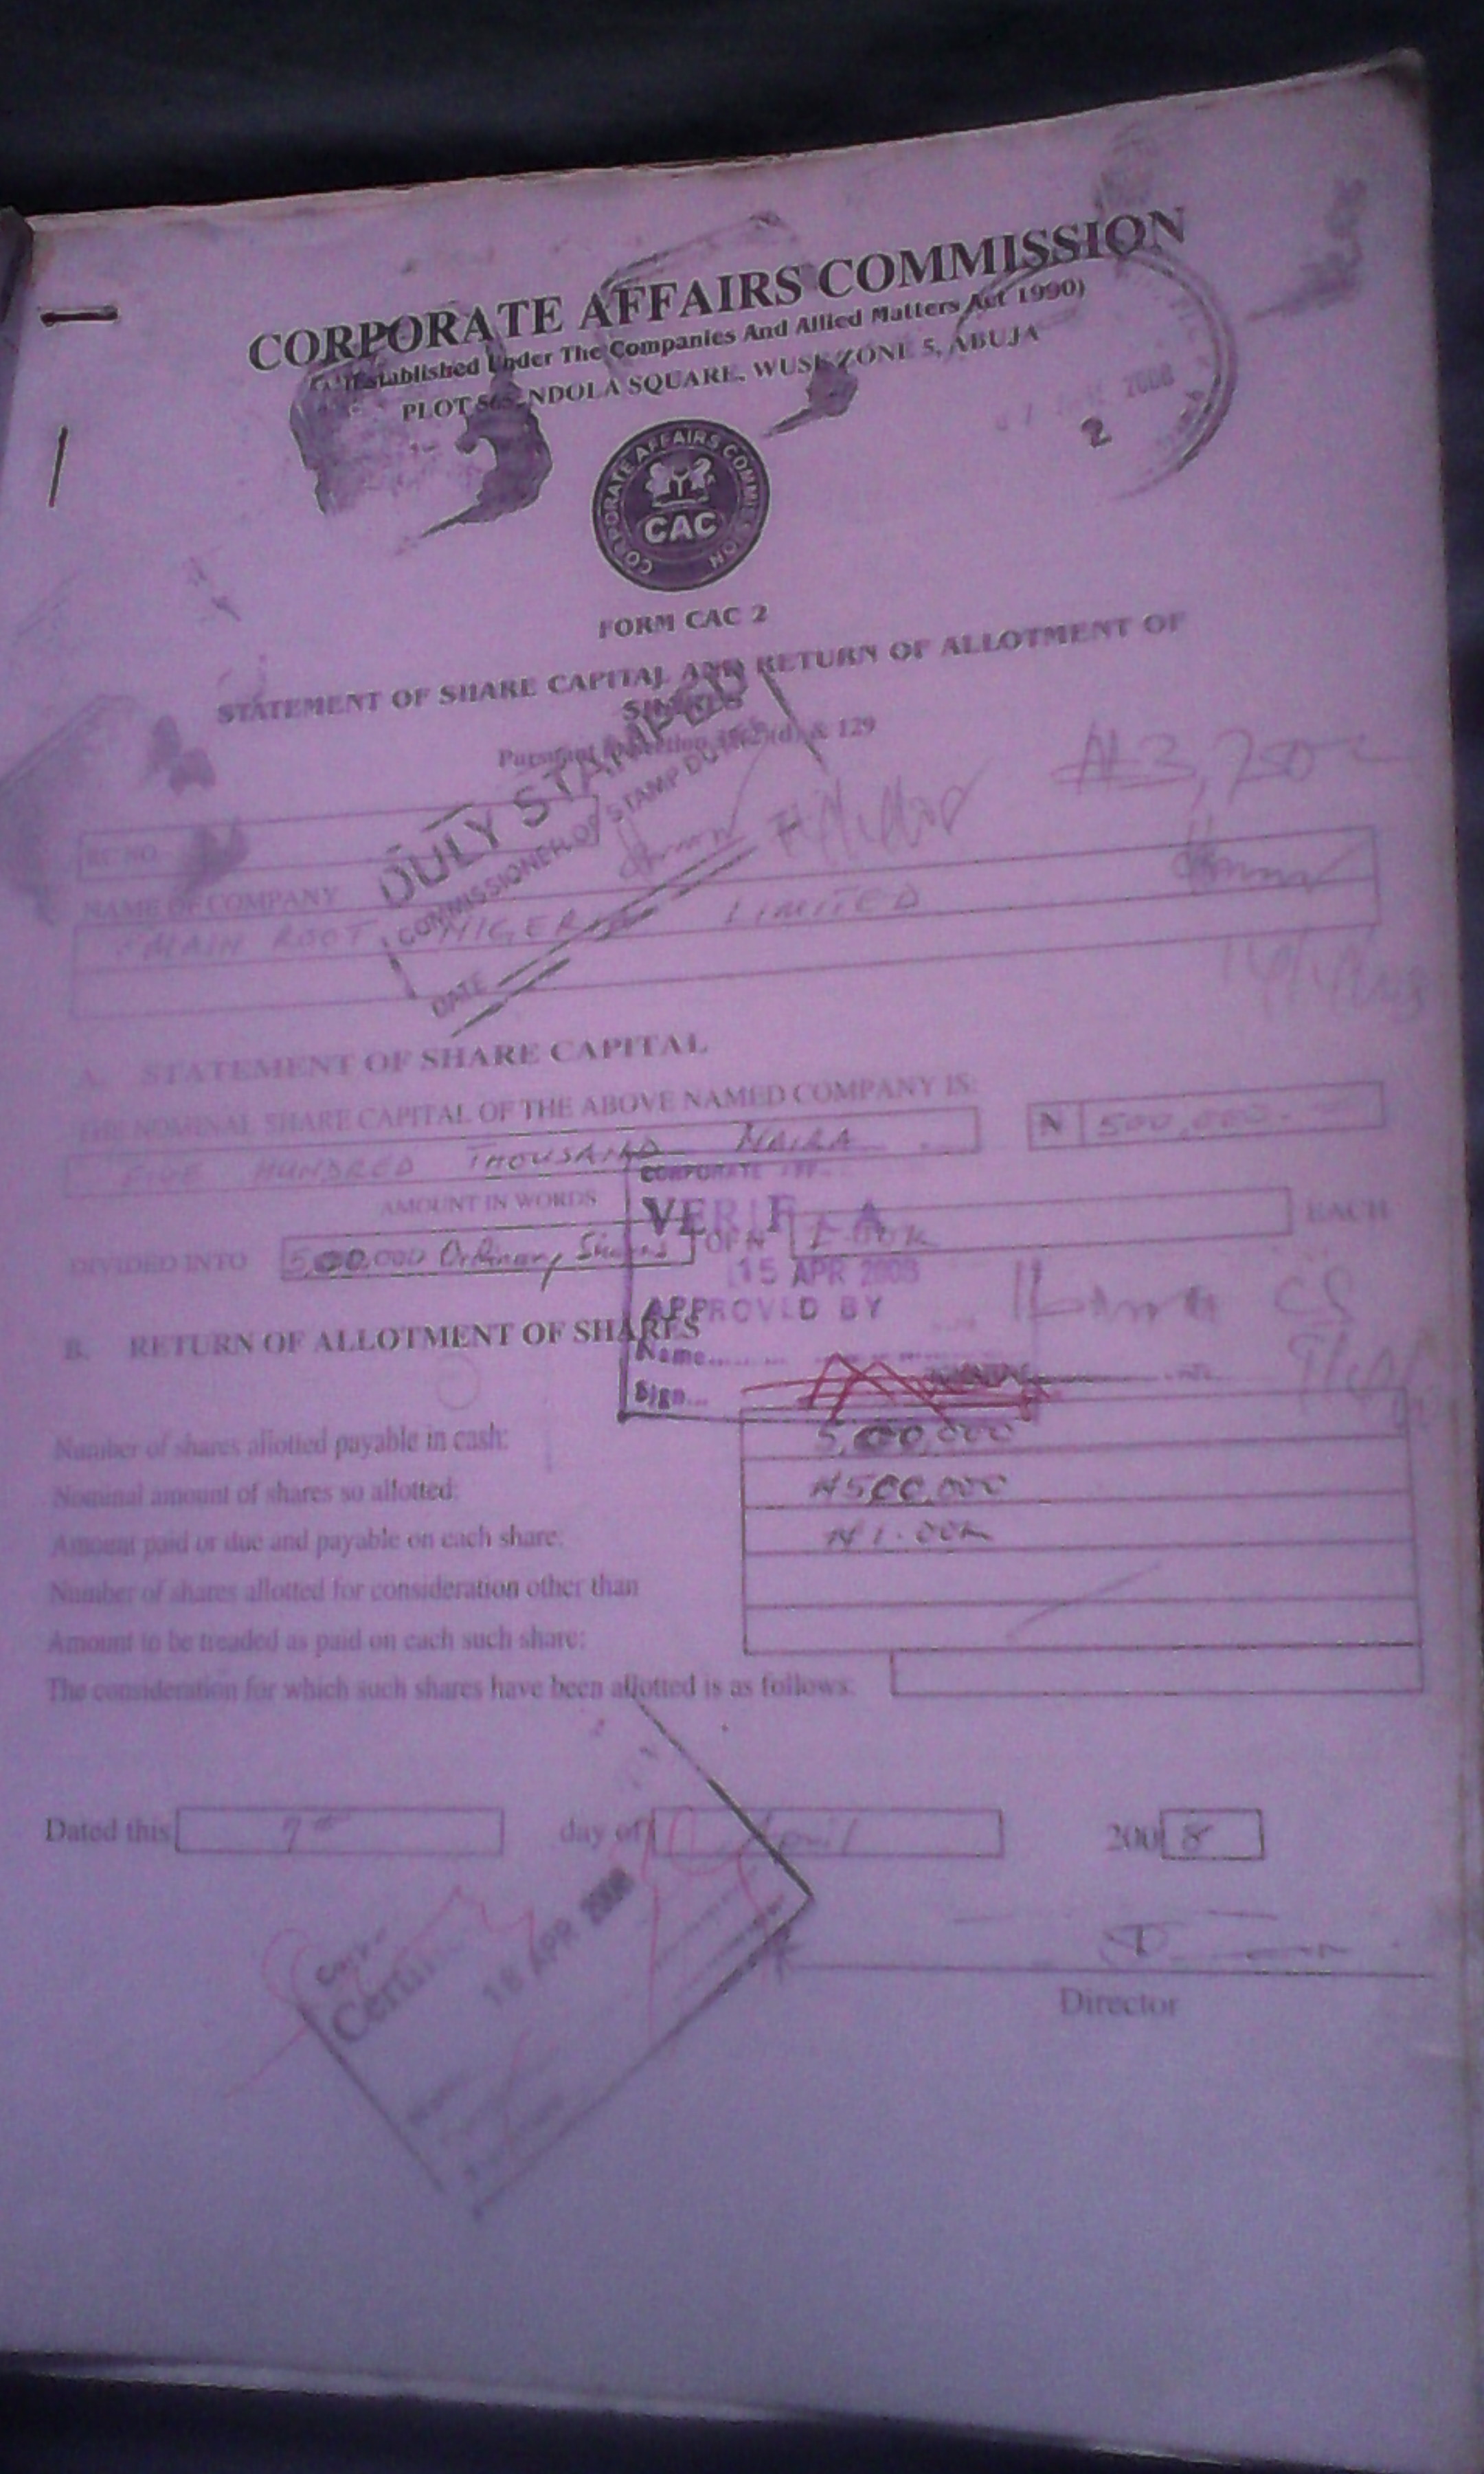 CORPORATE AFFAIRS COMMISSION
(Established Under The Companies And Allied Matters Act 1990)
PLOT 565, NDOLA SQUARE, WUSE ZONE 5, ABUJA
2008
2
CORPORATE AFFAIRS COMMISSION
CAC
FORM CAC 2
STATEMENT OF SHARE CAPITAL AND RETURN OF ALLOTMENT OF
SHARES
Pursuant to section 35(2)(d) & 129
DULY STAMPED
COMMISSIONER OF STAMP DUTIES
DATE
RC NO
NAME OF COMPANY
MAIN ROOT NIGERIA LIMITED
A. STATEMENT OF SHARE CAPITAL
THE NOMINAL SHARE CAPITAL OF THE ABOVE NAMED COMPANY IS:
FIVE HUNDRED THOUSAND NAIRA N 500,000.
AMOUNT IN WORDS
DIVIDED INTO 500,000 Ordinary Shares OF N 1.00k EACH
CORPORATE
15 APR 2008
APPROVED BY
Name
Sign
B. RETURN OF ALLOTMENT OF SHARES
Number of shares allotted payable in cash: 500,000
Nominal amount of shares so allotted: ₦500,000
Amount paid or due and payable on each share: ₦1.00k
Number of shares allotted for consideration other than
Amount to be treaded as paid on each such share:
The consideration for which such shares have been allotted is as follows:
Dated this day of April 200 8
16 APR 2008
Director